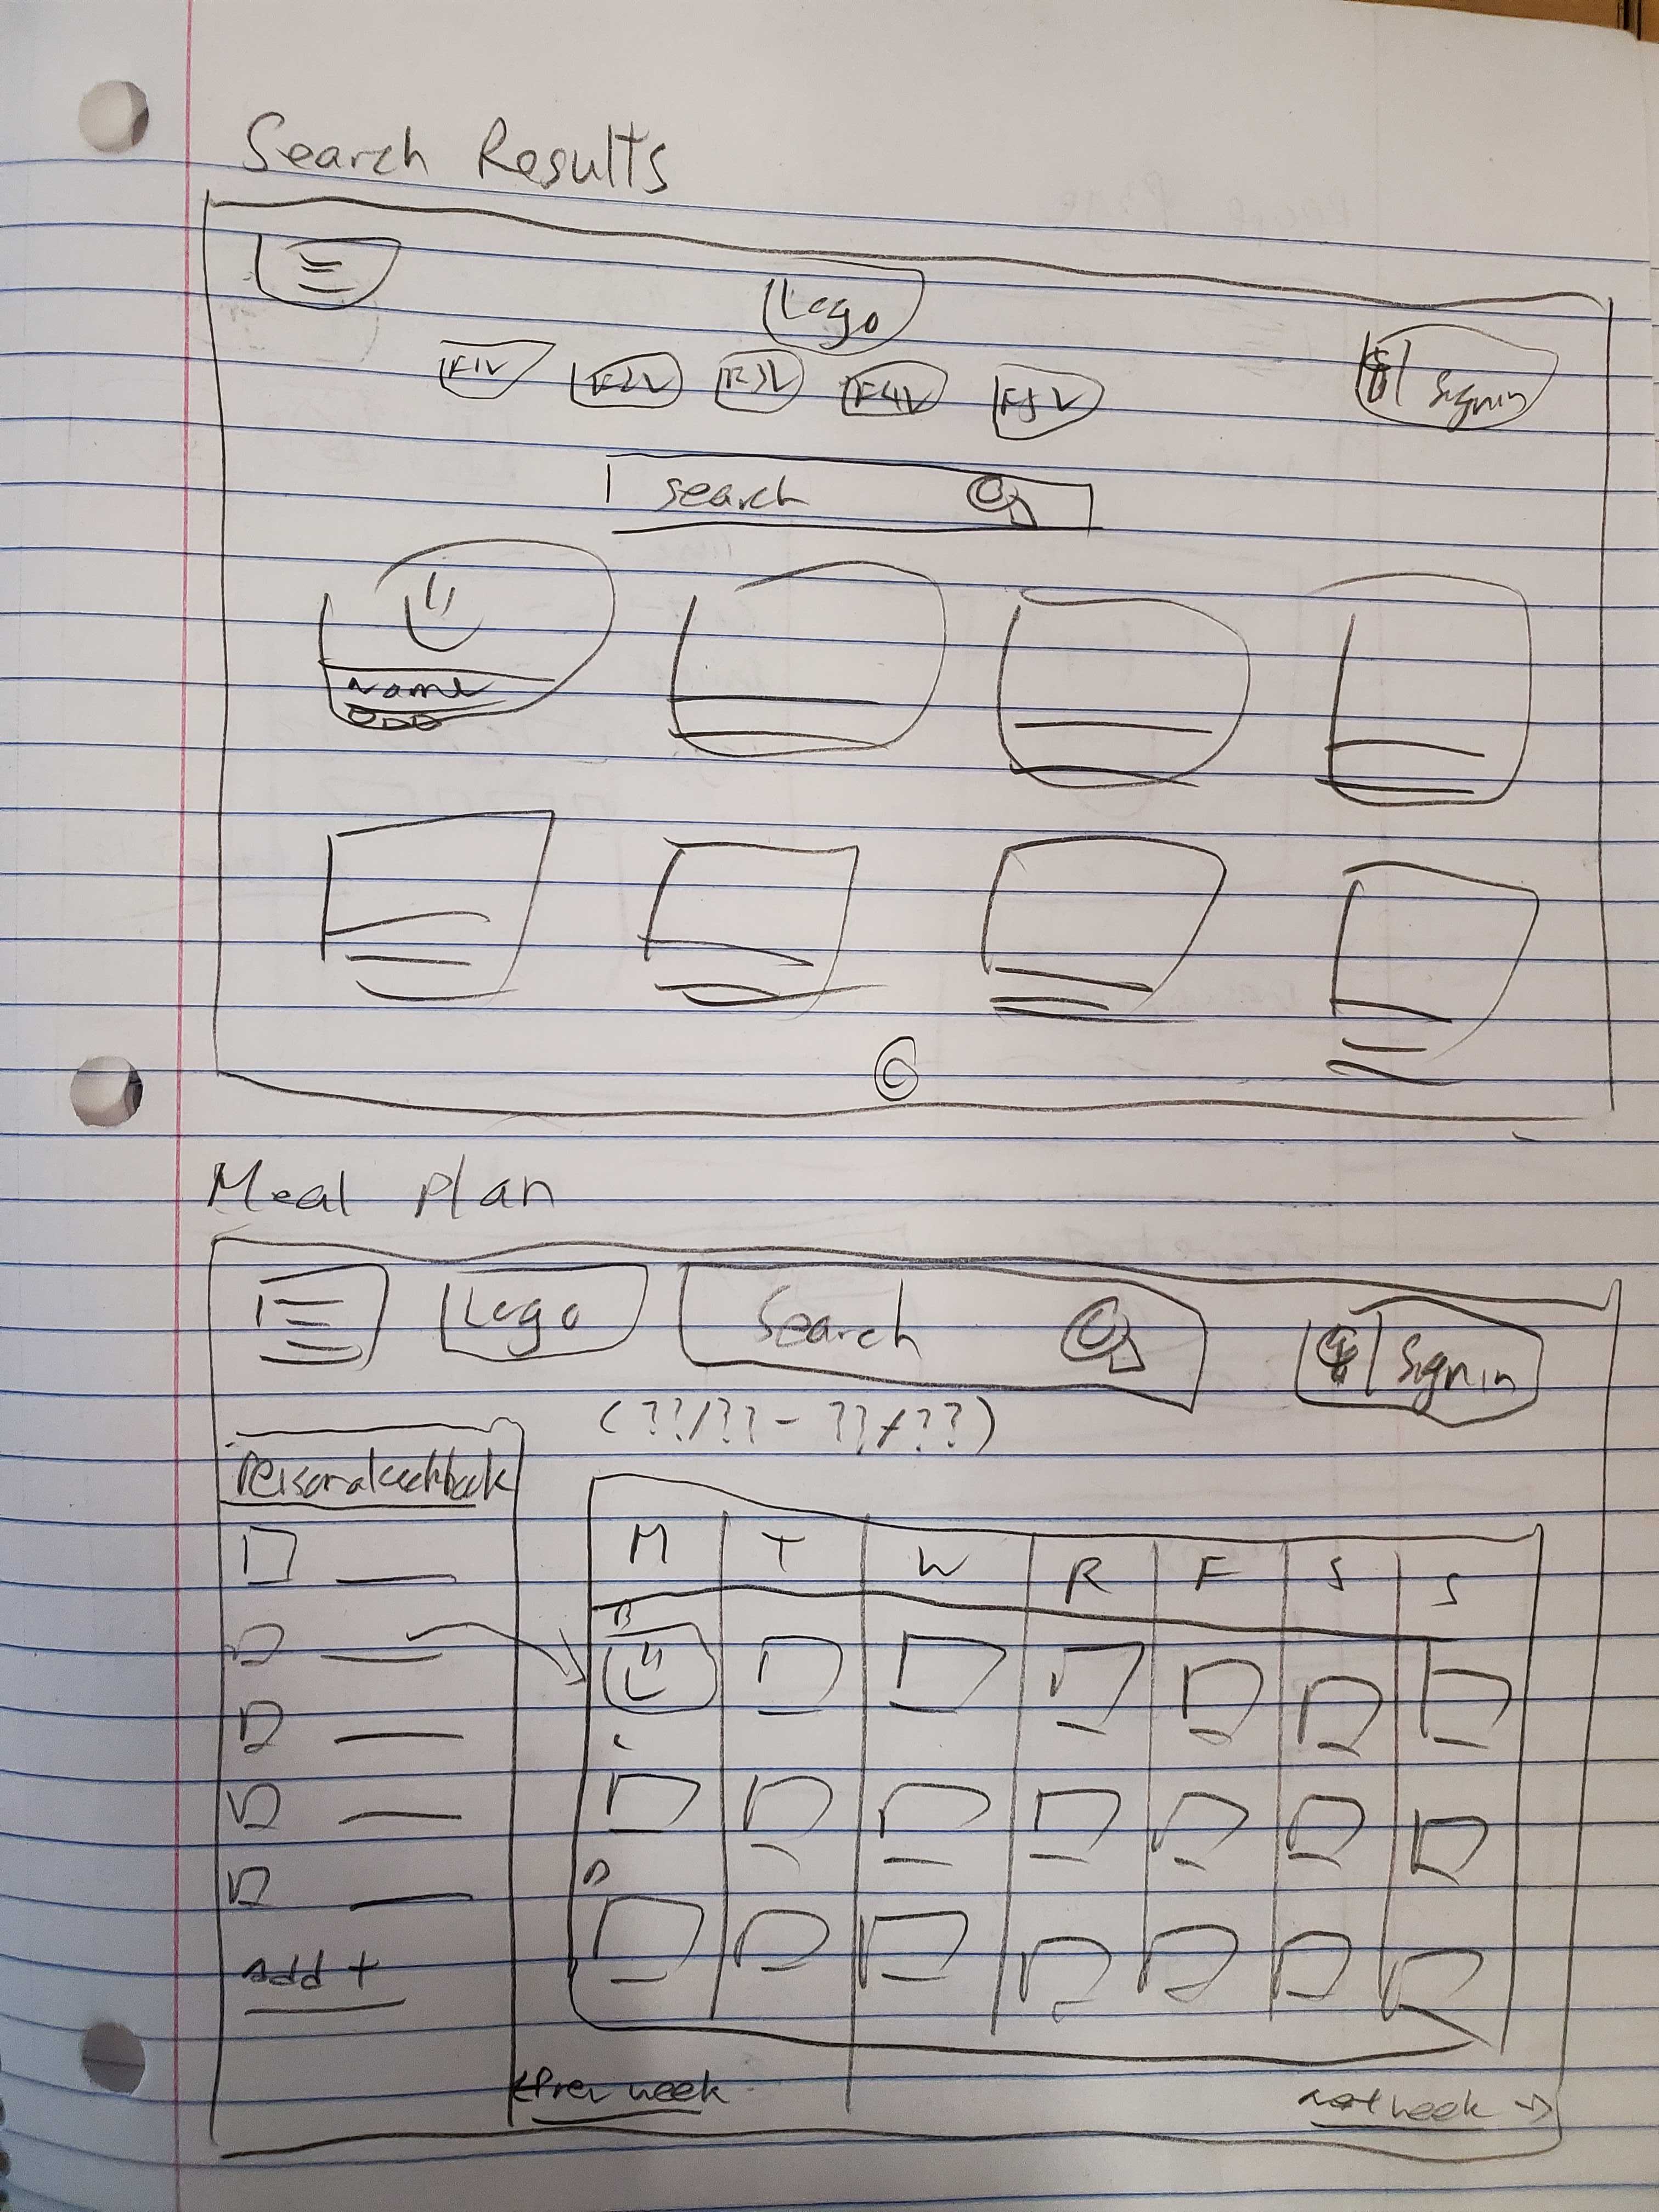 Search Results
Logo
F1V F2V F3V F4V F5V
Signin
search
Name
©
Meal plan
Logo Search Signin
(??/?? - ??/??)
Personal cookbook
M T W R F S S
B
L
D
Add +
<Prev week next week →